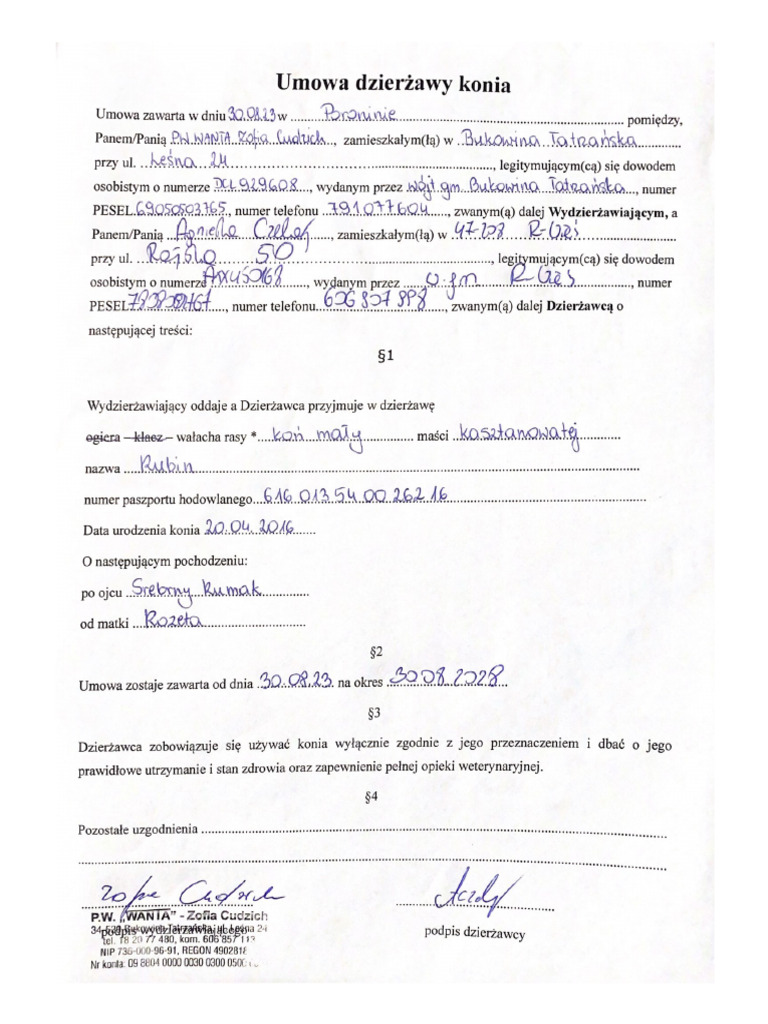 Umowa dzierżawy konia
Umowa zawarta w dniu 30.08.23 w ... Poroninie ... pomiędzy,
Panem/Panią P.W. WANTA Zofia Cudzich, zamieszkałym(łą) w Bukowina Tatrzańska
przy ul. Leśna 24 ..., legitymującym(cą) się dowodem
osobistym o numerze DCL929608, wydanym przez wójt gm. Bukowina Tatrzańska, numer
PESEL 69050503765, numer telefonu 791077604, zwanym(ą) dalej Wydzierżawiającym, a
Panem/Panią Agnieszka, zamieszkałym(łą) w 47-208 R-Wieś
przy ul. Rajska 50, legitymującym(cą) się dowodem
osobistym o numerze, wydanym przez U. gm R-Wieś, numer
PESEL, numer telefonu 606 807 998, zwanym(ą) dalej Dzierżawcą o
następującej treści:
§1
Wydzierżawiający oddaje a Dzierżawca przyjmuje w dzierżawę
ogiera – klacz – wałacha rasy * koń mały maści kasztanowatej
nazwa Rubin
numer paszportu hodowlanego 616 013 54 00 262 16
Data urodzenia konia 20.04.2016
O następującym pochodzeniu:
po ojcu Srebrny Rumak
od matki Rozeta
§2
Umowa zostaje zawarta od dnia 30.08.23 na okres 30 08.2028
§3
Dzierżawca zobowiązuje się używać konia wyłącznie zgodnie z jego przeznaczeniem i dbać o jego
prawidłowe utrzymanie i stan zdrowia oraz zapewnienie pełnej opieki weterynaryjnej.
§4
Pozostałe uzgodnienia
Zofia Cudzich
P.W. „WANTA" - Zofia Cudzich
34-530 Bukowina Tatrzańska, ul. Leśna 24
podpis wydzierżawiającego
tel. 18 20 77 480, kom. 606 857 113
NIP 736-000-96-91, REGON 4902818
Nr konta: 09 8804 0000 0030 0300 0500
podpis dzierżawcy